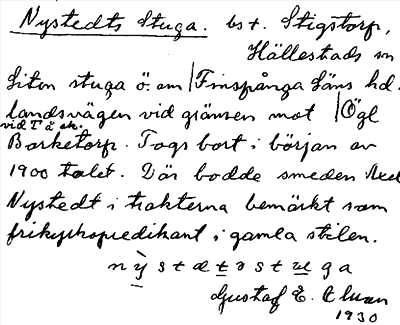 Nystedts Stuga. bst. Stigstorp,
Hällestads sn
Liten stuga ö. om Finspånga läns hd.
landsvägen vid gränsen mot Ögl
vid Tä
Borketorp. Togs bort i början av
1900 talet. Där bodde smeden Axel
Nystedt i trakterna bemärkt som
frikyrkopredikant i gamla stilen.
Gustaf E.
1930